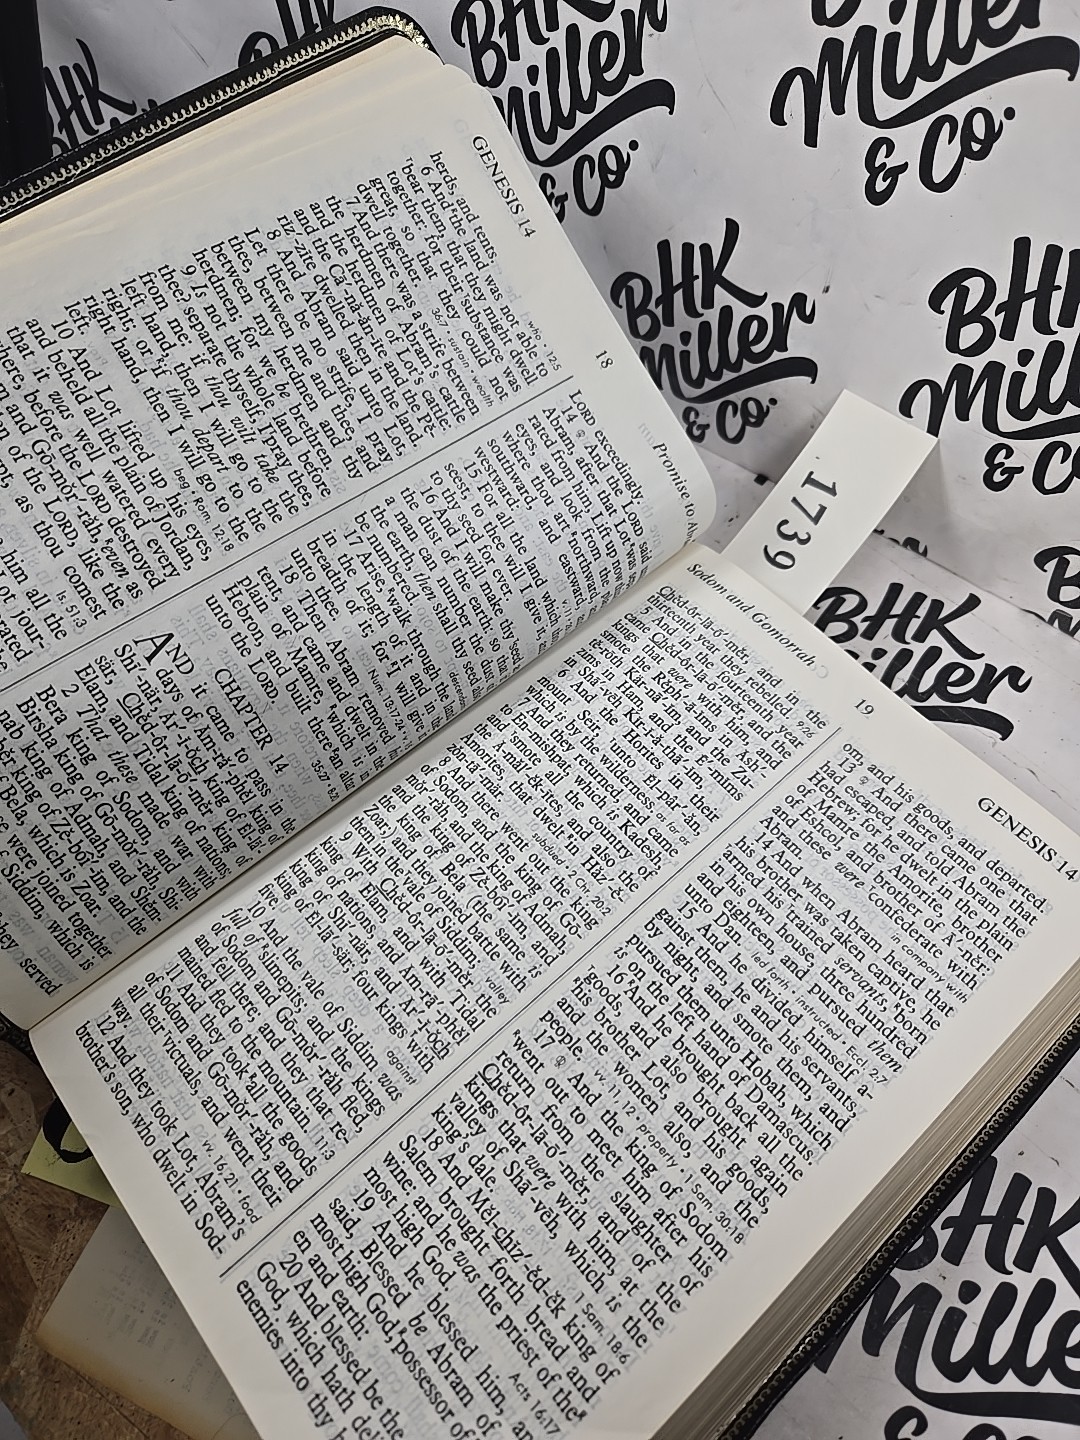 GENESIS 14
18
Promise to Ab
herds, and tents.
6 And the land was not able to
bear them, that they might dwell
together: for their substance was
great, so that they could not
dwell together.
7 And there was a strife between
the herdmen of Abram's cattle
and the herdmen of Lot's cattle:
and the Cā'-năn-ite and the Pĕ-
rĭz'-zite dwelled then in the land.
8 And Abram said unto Lot,
Let there be no strife, I pray
thee, between me and thee, and
between my herdmen and thy
herdmen; for we be brethren.
9 Is not the whole land before
thee? separate thyself, I pray thee,
from me: if thou wilt take the
left hand, then I will go to the
right; or if thou depart to the
right hand, then I will go to the
left.
10 And Lot lifted up his eyes,
and beheld all the plain of Jordan,
that it was well watered every
where, before the LORD destroyed
and Gō-mŏr'-răh, even as
n of the LORD, like the
pt, as thou comest
LORD exceedingly.
14 And the LORD said
Abram, after that Lot was
rated from him, Lift up now
eyes, and look from the
where thou art northward,
southward, and eastward,
westward:
15 For all the land which
seest, to thee will I give it,
to thy seed for ever.
16 And I will make thy seed
the dust of the earth: so that
a man can number the dust
the earth, then shall thy seed
be numbered.
17 Arise, walk through the
land in the length of it and in
breadth of it; for I will give
unto thee.
18 Then Abram removed his
tent, and came and dwelt in
plain of Mamre, which is in
Hebron, and built there an altar
unto the LORD.
CHAPTER 14
AND it came to pass in the
days of Ăm-rā-phĕl king of
Shī'-när, Ăr'-ĭ-ŏch king of Ĕl-lā'-
sär, Chĕd-ôr-lā-ō'-mĕr king of
Elam, and Tidal king of nations;
2 That these made war with
Bera king of Sodom, and with
Birsha king of Gō-mŏr'-răh, Shī-
nab king of Admah, and Shĕm-
ĕr king of Zĕ-boi'-im, and the
Bela, which is Zoar.
e were joined together
Siddim, which is
they served
Sodom and Gomorrah
19
GENESIS 14
Chĕd-ôr-lā-ō'-mĕr, and in the
thirteenth year they rebelled.
5 And in the fourteenth year
came Chĕd-ôr-lā-ō'-mĕr, and the
kings that were with him, and
smote the Rĕph'-ā-ims in Ăsh'-
tē-rŏth Kär-nā'-im, and the Zū'-
zims in Ham, and the Ē'-mims
in Shā'-vĕh Kĭr-ĭ-a-thā'-im,
6 And the Hôrites in their
mount Seir, unto Ĕl-pâr'-ăn,
which is by the wilderness.
7 And they returned, and came
to Ĕn-mishpat, which is Kadesh,
and smote all the country of
the Ă-măl'-ĕk-ites, and also the
Amorites, that dwelt in Hăz'-ĕ-
zŏn-tā'-mär.
8 And there went out the king
of Sodom, and the king of Gō-
mŏr'-răh, and the king of Admah,
and the king of Zĕ-boi'-im, and
the king of Bela (the same is
Zoar;) and they joined battle with
them in the vale of Siddim;
9 With Chĕd-ôr-lā-ō'-mĕr the
king of Elam, and with Tidal
king of nations, and Ăm-rā'-phĕl
king of Shī'-när, and Ăr'-ĭ-ŏch
king of Ĕl-lā'-sär; four kings with
five.
10 And the vale of Siddim was
full of slimepits; and the kings
of Sodom and Gō-mŏr'-răh fled,
and fell there; and they that re-
mained fled to the mountain.
11 And they took all the goods
of Sodom and Gō-mŏr'-răh, and
all their victuals, and went their
way.
12 And they took Lot, Abram's
brother's son, who dwelt in Sod-
om, and his goods, and departed.
13 And there came one that
had escaped, and told Abram the
Hebrew; for he dwelt in the plain
of Mamre the Amorite, brother
of Eshcol, and brother of Ā'-nĕr:
and these were confederate with
Abram.
14 And when Abram heard that
his brother was taken captive, he
armed his trained servants, born
in his own house, three hundred
and eighteen, and pursued them
unto Dan.
15 And he divided himself a-
gainst them, he and his servants,
by night, and smote them, and
pursued them unto Hobah, which
is on the left hand of Damascus.
16 And he brought back all the
goods, and also brought again
his brother Lot, and his goods,
and the women also, and the
people.
17 And the king of Sodom
went out to meet him after his
return from the slaughter of
Chĕd-ôr-lā-ō'-mĕr, and of the
kings that were with him, at the
valley of Shā'-vĕh, which is the
king's dale.
18 And Mĕl-chĭz'-ĕd-ĕk king of
Salem brought forth bread and
wine: and he was the priest of the
most high God.
19 And he blessed him, and
said, Blessed be Abram of the
most high God, possessor of
en and earth:
20 And blessed be the
God, which hath deli
enemies into thy
1739
BHK
Miller
& CO.